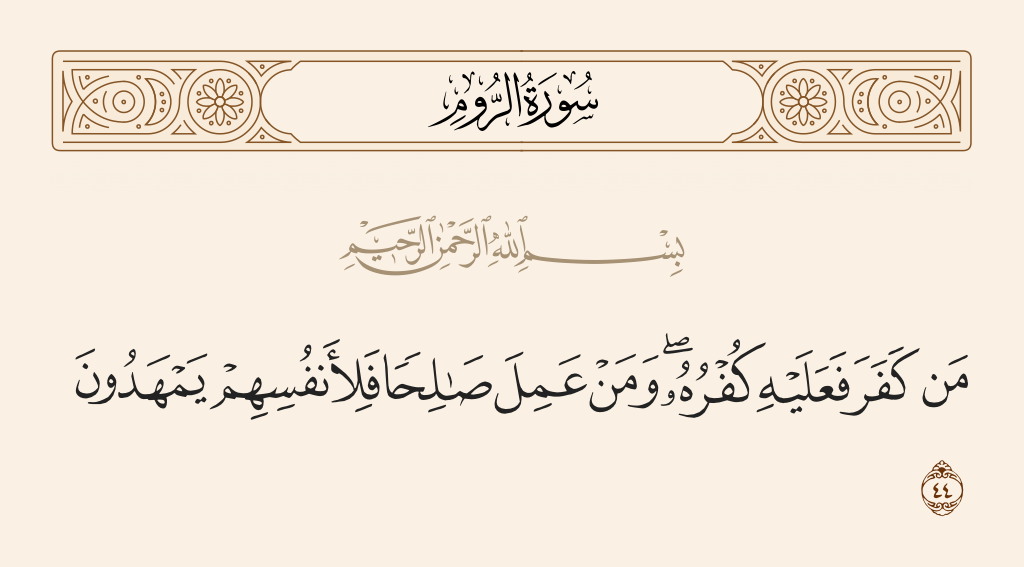 سُورَةُ الرُّومِ
بِسْمِ ٱللَّهِ ٱلرَّحْمَٰنِ ٱلرَّحِيمِ
مَن كَفَرَ فَعَلَيْهِ كُفْرُهُۥ ۖ وَمَنْ عَمِلَ صَـٰلِحًا فَلِأَنفُسِهِمْ يَمْهَدُونَ
٤٤